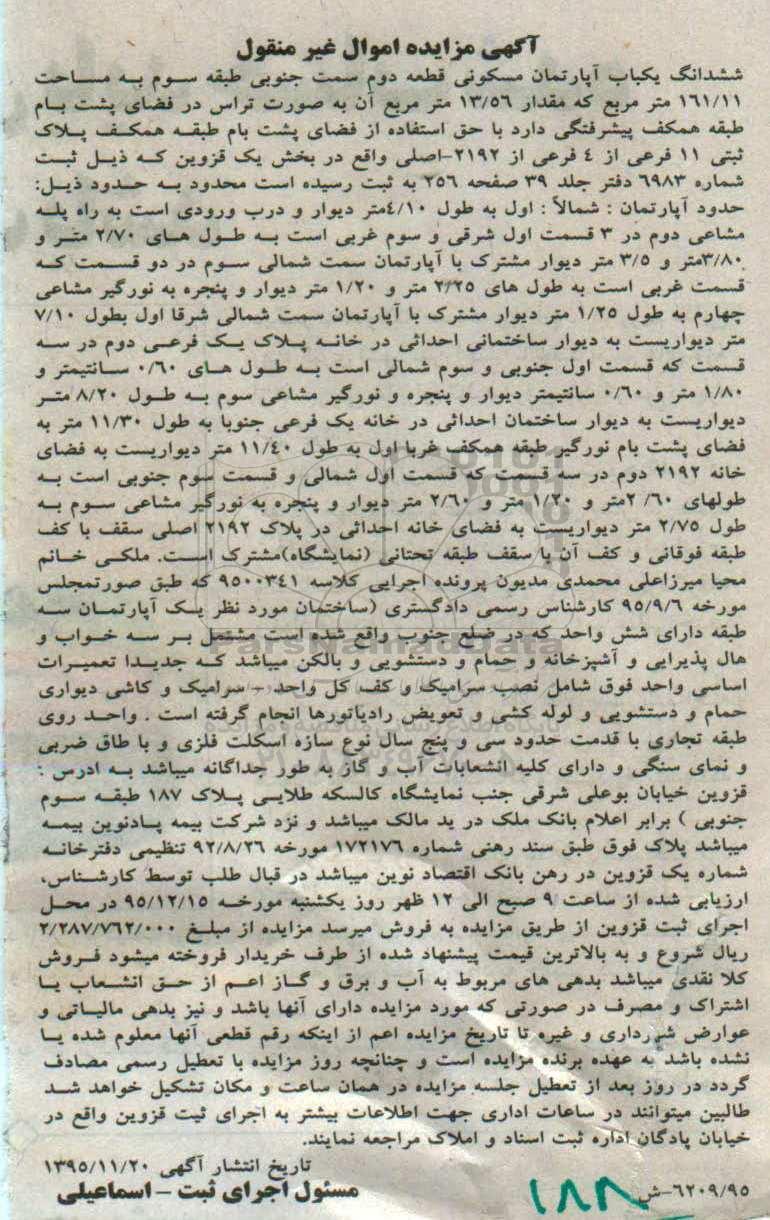 آگهی مزایده اموال غیر منقول
ششدانگ یکباب آپارتمان مسکونی قطعه دوم سمت جنوبی طبقه سوم به مساحت
۱۶۱/۱۱ متر مربع که مقدار ۱۳/۵۶ متر مربع آن به صورت تراس در فضای پشت بام
طبقه همکف پیشرفتگی دارد با حق استفاده از فضای پشت بام طبقه همکف پلاک
ثبتی ۱۱ فرعی از ۴ فرعی از ۲۱۹۲-اصلی واقع در بخش یک قزوین که ذیل ثبت
شماره ۶۹۸۳ دفتر جلد ۳۹ صفحه ۲۵۶ به ثبت رسیده است محدود به حدود ذیل:
حدود آپارتمان : شمالاً : اول به طول ۴/۱۰متر دیوار و درب ورودی است به راه پله
مشاعی دوم در ۳ قسمت اول شرقی و سوم غربی است به طول های ۲/۷۰ متر و
۳/۸۰متر و ۳/۵ متر دیوار مشترک با آپارتمان سمت شمالی سوم در دو قسمت که
قسمت غربی است به طول های ۲/۲۵ متر و ۱/۲۰ متر دیوار و پنجره به نورگیر مشاعی
چهارم به طول ۱/۲۵ متر دیوار مشترک با آپارتمان سمت شمالی شرقا اول بطول ۷/۱۰
متر دیواریست به دیوار ساختمانی احداثی در خانه پلاک یک فرعی دوم در سه
قسمت که قسمت اول جنوبی و سوم شمالی است به طول های ۰/۶۰ سانتیمتر و
۱/۸۰ متر و ۰/۶۰ سانتیمتر دیوار و پنجره و نورگیر مشاعی سوم به طول ۸/۲۰ متر
دیواریست به دیوار ساختمان احداثی در خانه یک فرعی جنوبا به طول ۱۱/۳۰ متر به
فضای پشت بام نورگیر طبقه همکف غربا اول به طول ۱۱/۴۰ متر دیواریست به فضای
خانه ۲۱۹۲ دوم در سه قسمت که قسمت اول شمالی و قسمت سوم جنوبی است به
طولهای ۲/۶۰متر و ۱/۲۰ متر و ۲/۶۰ متر دیوار و پنجره به نورگیر مشاعی سوم به
طول ۲/۷۵ متر دیواریست به فضای خانه احداثی در پلاک ۲۱۹۲ اصلی سقف با کف
طبقه فوقانی و کف آن با سقف طبقه تحتانی (نمایشگاه)مشترک است. ملکی خانم
محیا میرزاعلی محمدی مدیون پرونده اجرایی کلاسه ۹۵۰۰۳۴۱ که طبق صورتمجلس
مورخه ۹۵/۹/۶ کارشناس رسمی دادگستری (ساختمان مورد نظر یک آپارتمان سه
طبقه دارای شش واحد که در ضلع جنوب واقع شده است مشتمل بر سه خواب و
هال پذیرایی و آشپزخانه و حمام و دستشویی و بالکن میباشد که جدیدا تعمیرات
اساسی واحد فوق شامل نصب سرامیک و کف کل واحد - سرامیک و کاشی دیواری
حمام و دستشویی و لوله کشی و تعویض رادیاتورها انجام گرفته است . واحد روی
طبقه تجاری با قدمت حدود سی و پنج سال نوع سازه اسکلت فلزی و با طاق ضربی
و نمای سنگی و دارای کلیه انشعابات آب و گاز به طور جداگانه میباشد به ادرس :
قزوین خیابان بوعلی شرقی جنب نمایشگاه کالسکه طلایی پلاک ۱۸۷ طبقه سوم
جنوبی ) برابر اعلام بانک ملک در ید مالک میباشد و نزد شرکت بیمه پادنوین بیمه
میباشد پلاک فوق طبق سند رهنی شماره ۱۷۲۱۷۶ مورخه ۹۲/۸/۲۶ تنظیمی دفترخانه
شماره یک قزوین در رهن بانک اقتصاد نوین میباشد در قبال طلب توسط کارشناس،
ارزیابی شده از ساعت ۹ صبح الی ۱۲ ظهر روز یکشنبه مورخه ۹۵/۱۲/۱۵ در محل
اجرای ثبت قزوین از طریق مزایده به فروش میرسد مزایده از مبلغ ۲/۲۸۷/۷۶۲/۰۰۰
ریال شروع و به بالاترین قیمت پیشنهاد شده از طرف خریدار فروخته میشود فروش
کلا نقدی میباشد بدهی های مربوط به آب و برق و گاز اعم از حق انشعاب یا
اشتراک و مصرف در صورتی که مورد مزایده دارای آنها باشد و نیز بدهی مالیاتی و
عوارض شهرداری و غیره تا تاریخ مزایده اعم از اینکه رقم قطعی آنها معلوم شده یا
نشده باشد به عهده برنده مزایده است و چنانچه روز مزایده با تعطیل رسمی مصادف
گردد در روز بعد از تعطیل جلسه مزایده در همان ساعت و مکان تشکیل خواهد شد
طالبین میتوانند در ساعات اداری جهت اطلاعات بیشتر به اجرای ثبت قزوین واقع در
خیابان پادگان اداره ثبت اسناد و املاک مراجعه نمایند.
تاریخ انتشار آگهی ۱۳۹۵/۱۱/۲۰
مسئول اجرای ثبت - اسماعیلی
۶۲۰۹/۹۵-ش
۱۸۸
ParsNamadData